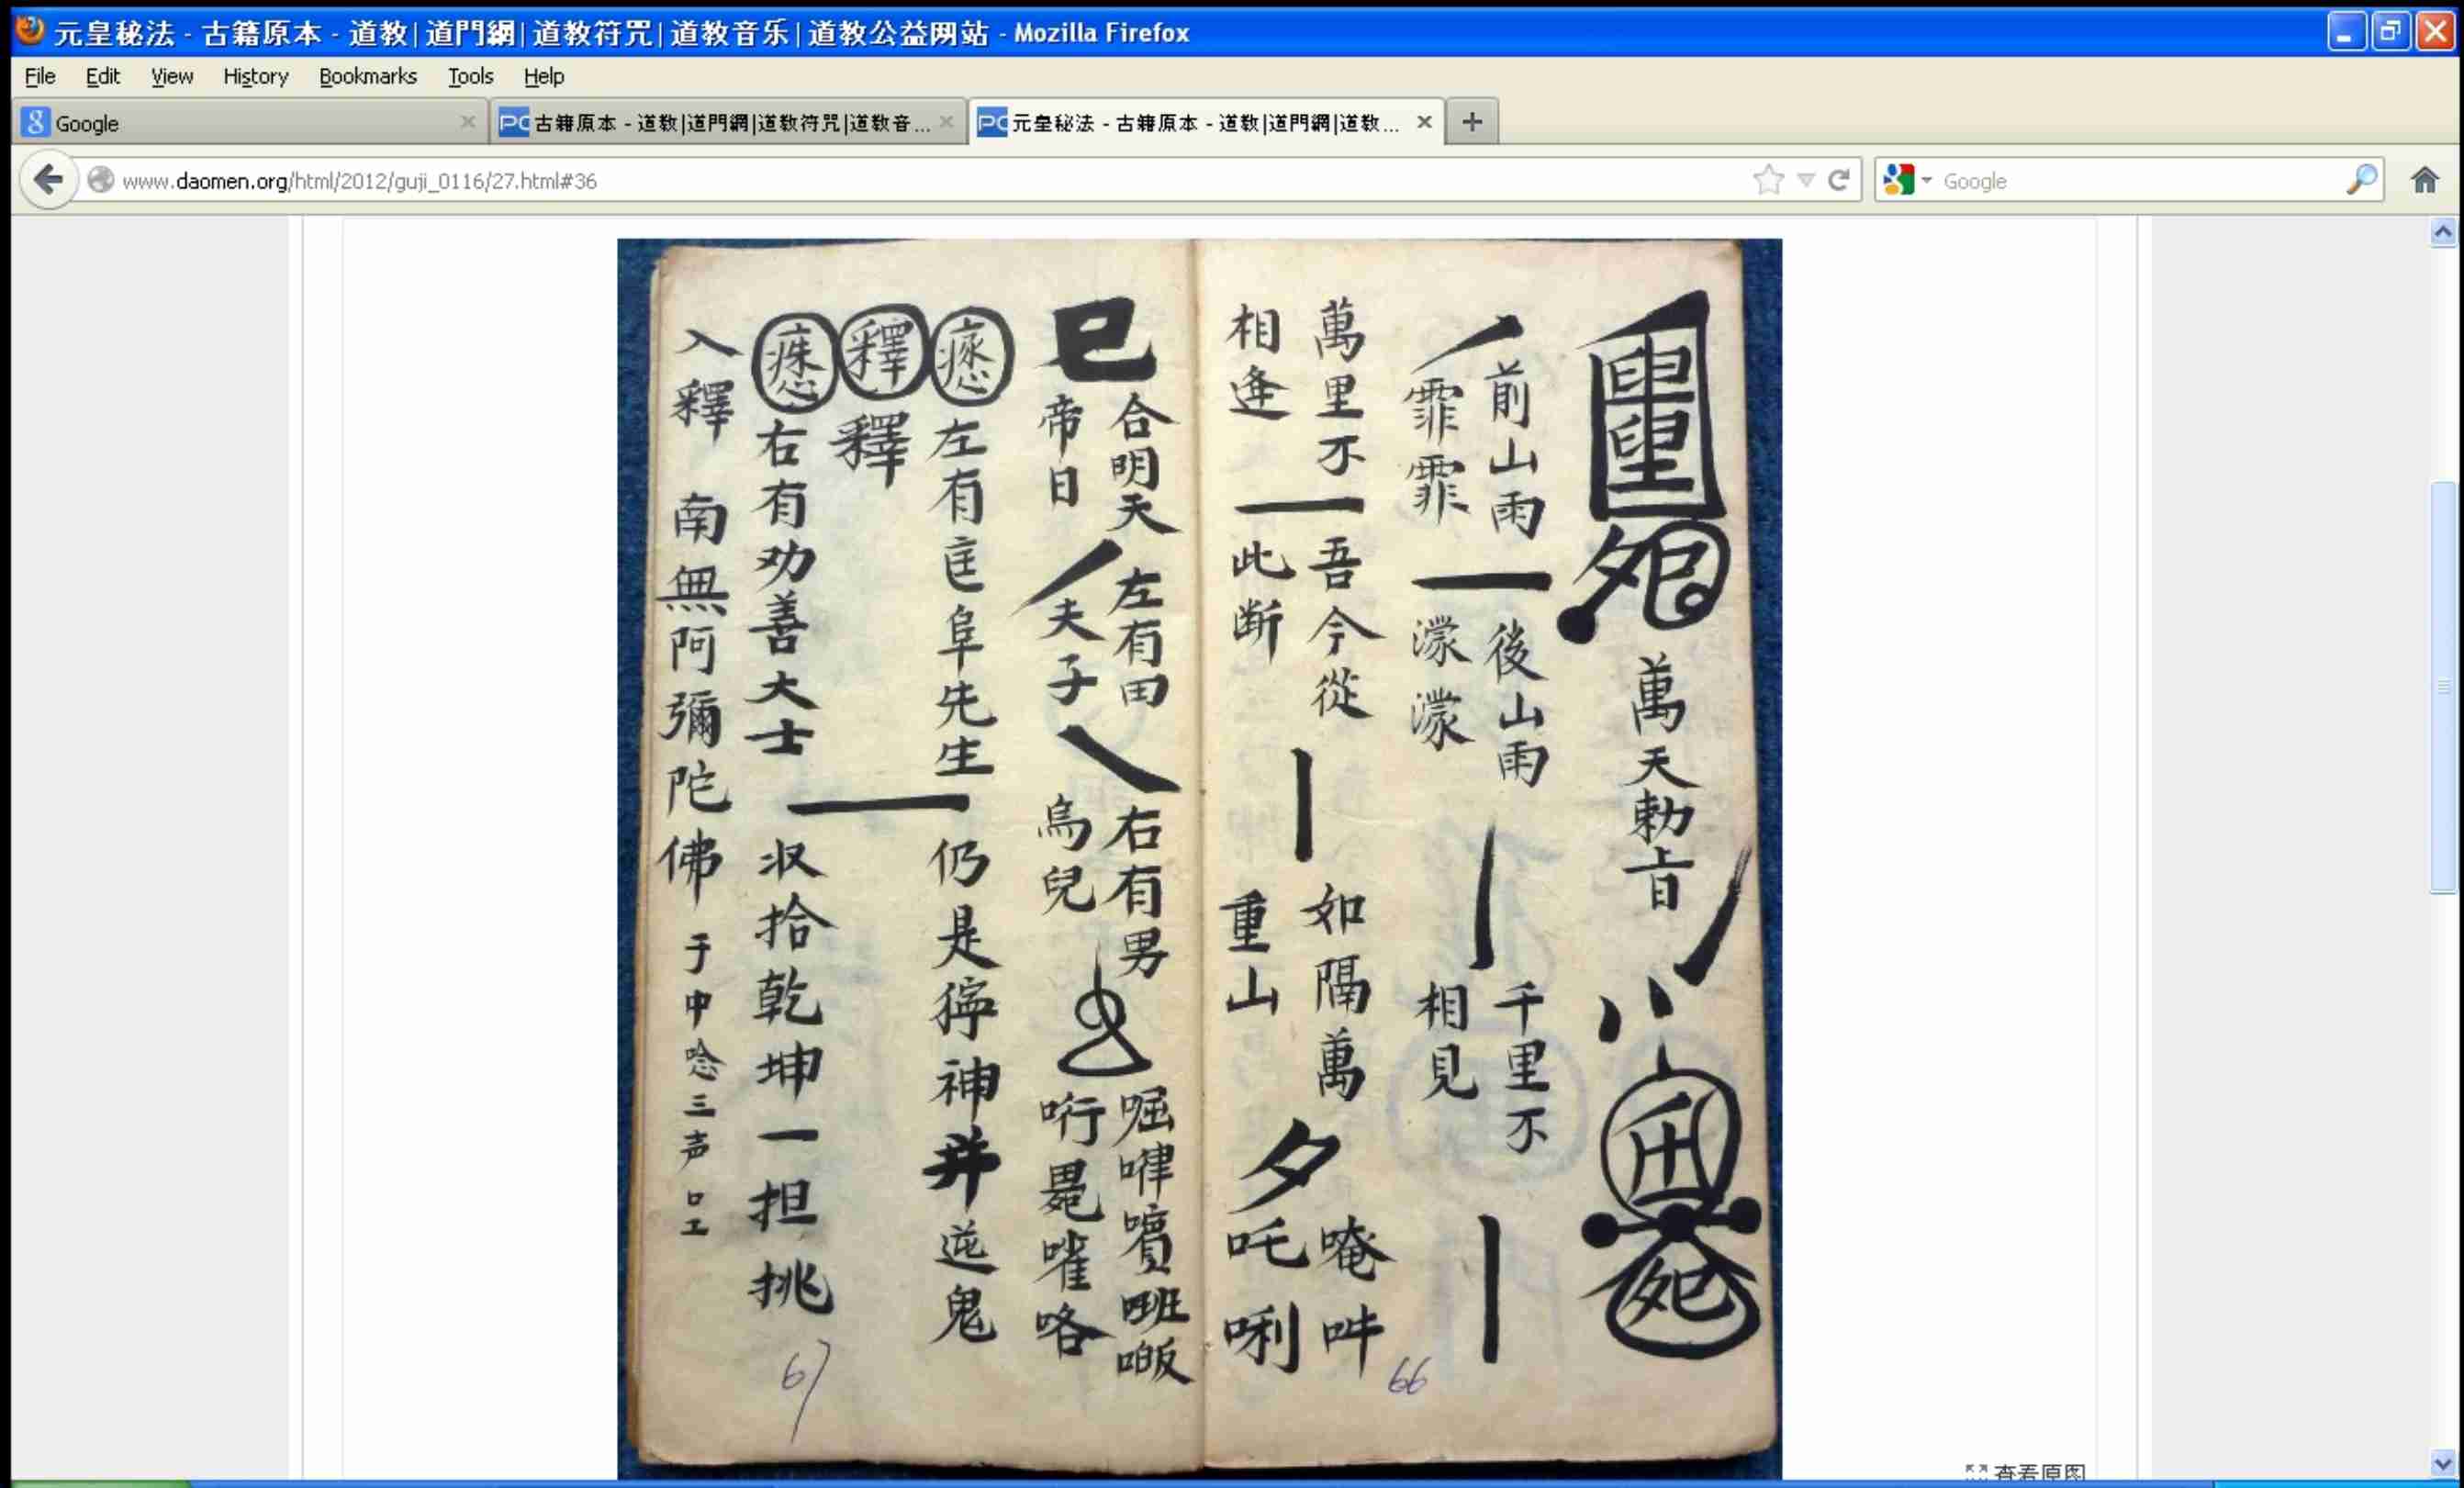 元皇秘法 - 古籍原本 - 道教|道門網|道教符咒|道教音乐|道教公益网站 - Mozilla Firefox
File Edit View History Bookmarks Tools Help
Google
古籍原本 - 道教|道門網|道教符咒|道教音...
元皇秘法 - 古籍原本 - 道教|道門網|道教...
www.daomen.org/html/2012/guji_0116/27.html#36
Google
萬天勅旨
前山雨霏霏
後山雨濛濛
千里不相見
萬里不相逢
吾今從此断
如隔萬重山
唵吽吒唎
合明天帝日
左有田夫子
右有男烏兒
左有 阜先生
仍是 神并逆鬼
釋
釋
右有劝善大士
収拾乾坤一担挑
入釋 南無阿彌陀佛 于中唸三声
66
67
查看原图